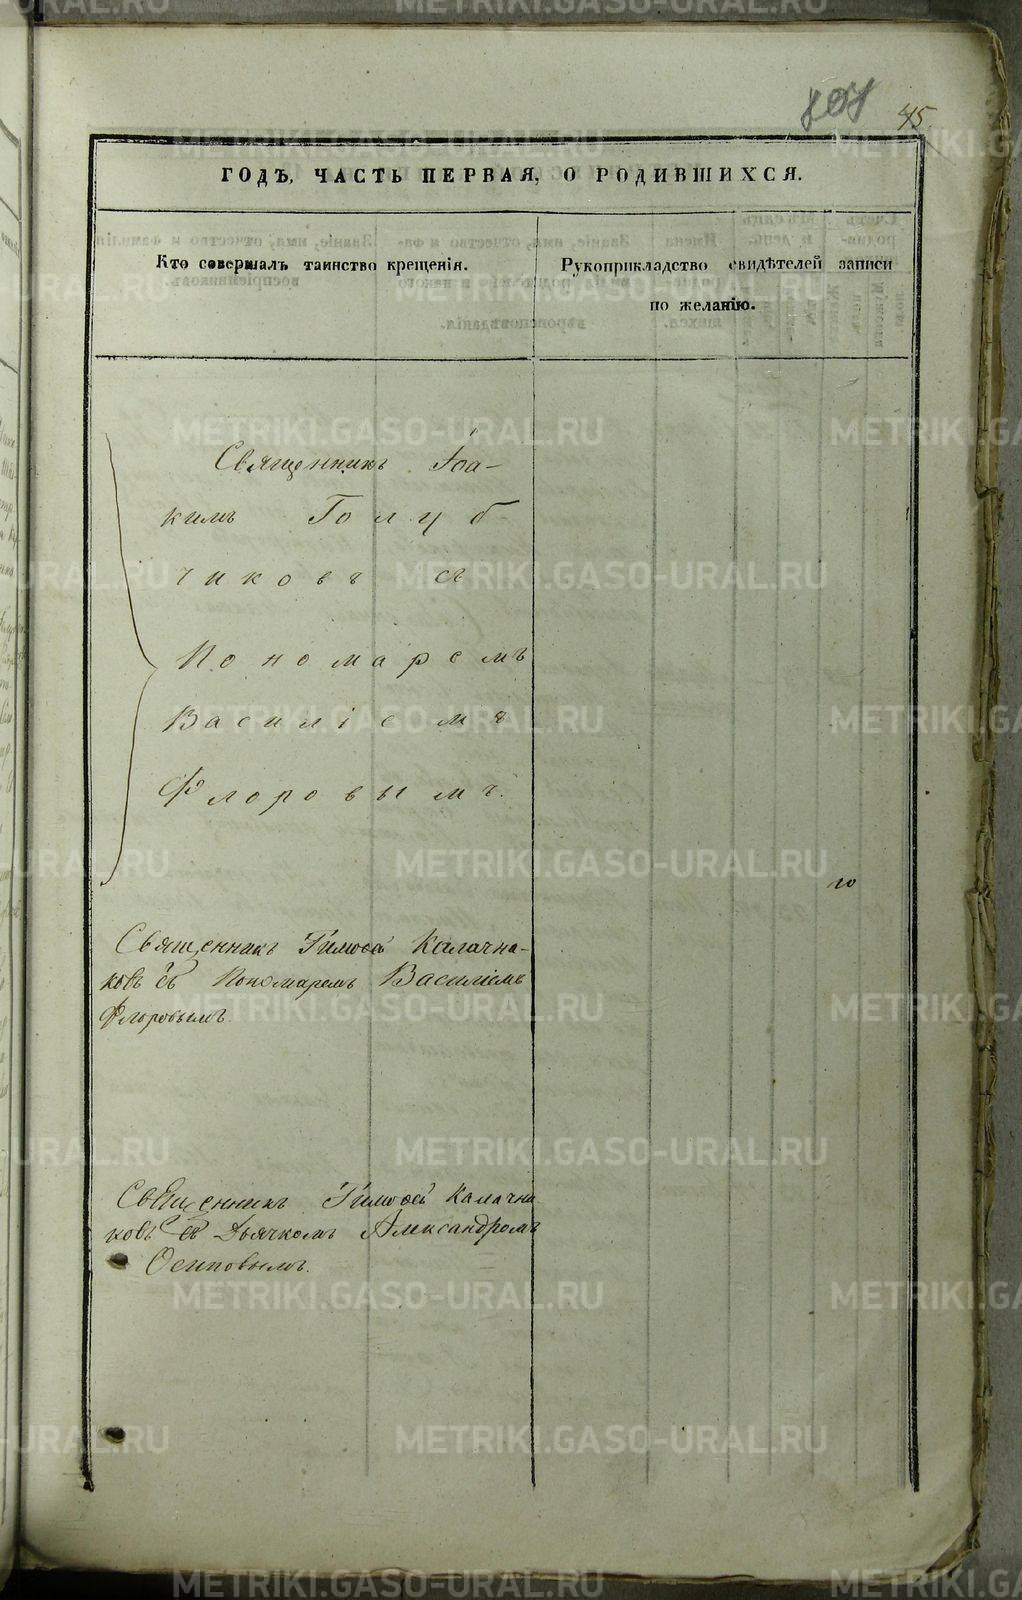 45
ГОДЪ, ЧАСТЬ ПЕРВАЯ, О РОДИВШИХСЯ.
Кто совершалъ таинство крещенія.
Рукоприкладство свидѣтелей записи
по желанію.
Священникъ Іоа-
кимъ Голуб-
чиковъ съ
Пономаремъ
Василіемъ
Флоровымъ.
Священникъ Тимоѳей Калачни-
ковъ съ Пономаремъ Василіемъ
Флоровымъ.
Священникъ Тимоѳей Калачни
ковъ съ Дьячкомъ Александромъ
Осиповымъ.
METRIKI.GASO-URAL.RU